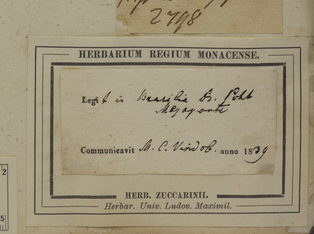 2798
HERBARIUM REGIUM MONACENSE.
Legit in Brasilia Dr. Pohl
Communicavit M. C. Vindob. anno 1839
HERB. ZUCCARINII.
Herbar. Univ. Ludov. Maximil.
2
5